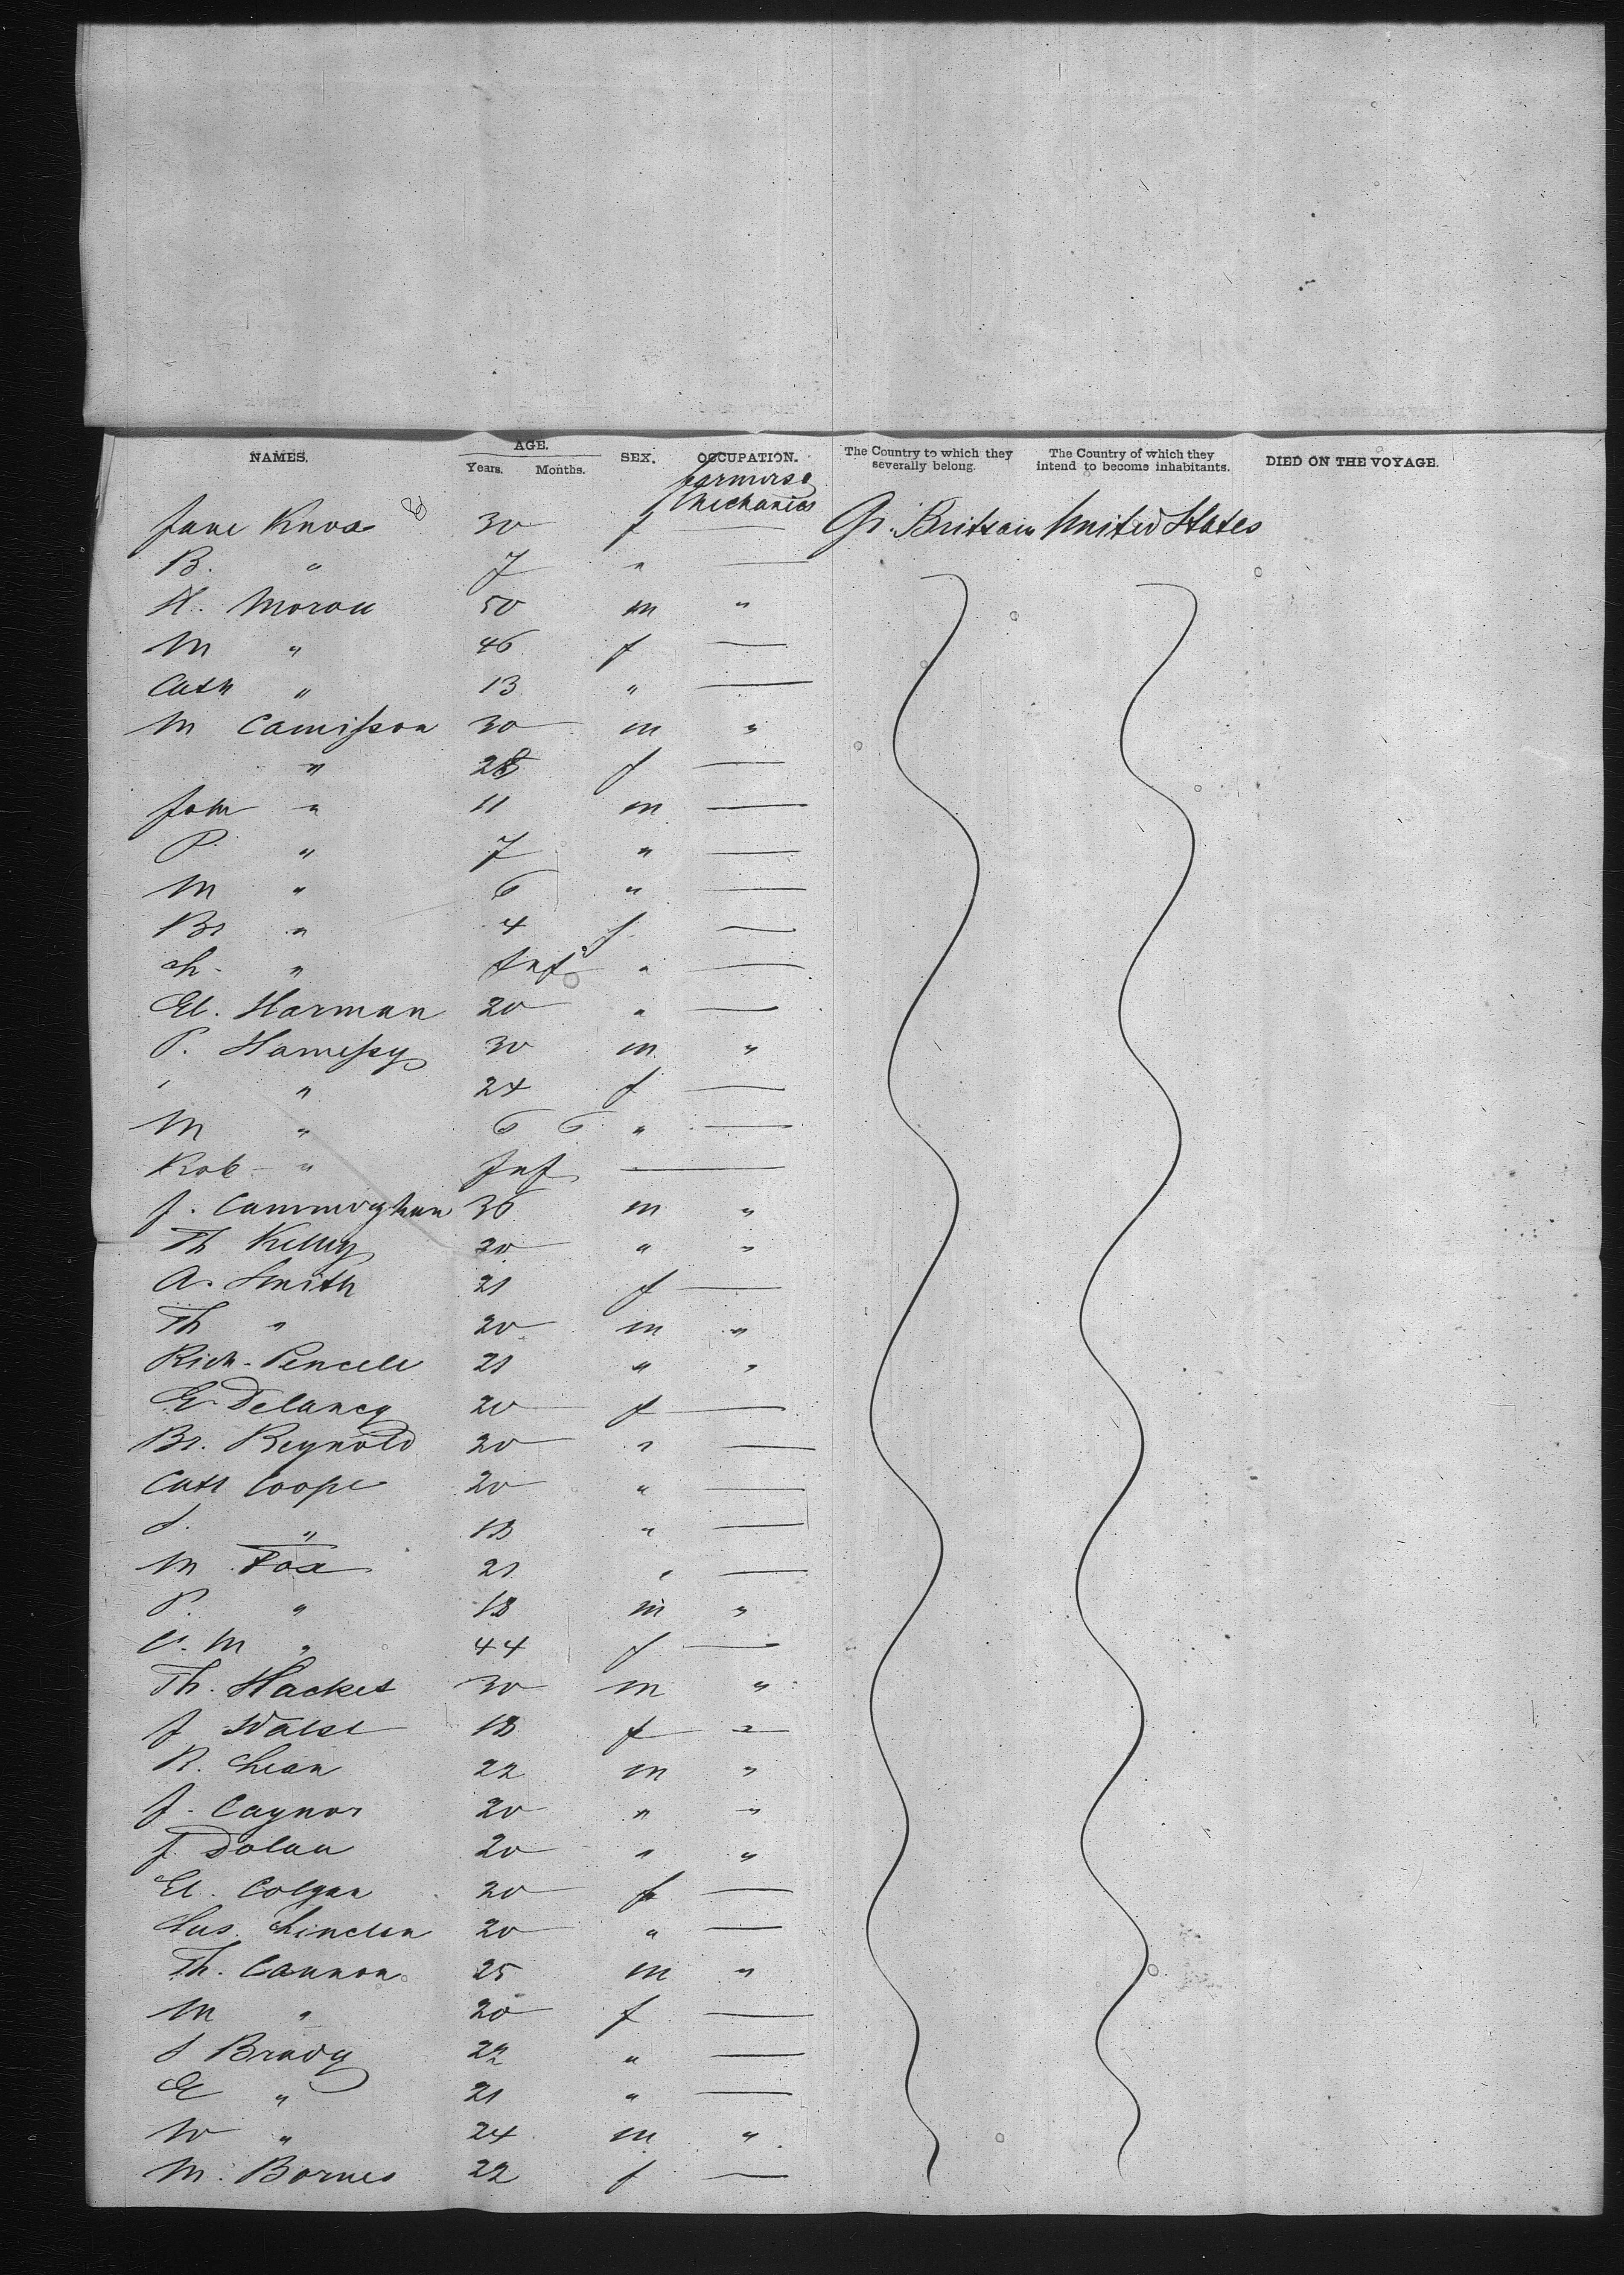 NAMES. AGE. Years. Months. SEX. OCCUPATION. The Country to which they severally belong. The Country of which they intend to become inhabitants. DIED ON THE VOYAGE.
Farmers &
Mechanics
Jane Knox 30 f — Gr. Brittain United States
B. " 7 " —
H. Moran 50 m "
M " 46 f —
Cath " 13 " —
M Camisson 30 m "
" 28 f —
John " 11 m —
P. " 7 " —
M " 6 " —
Br " 4 f —
Ch. " Inf " —
El. Harman 20 " —
P. Hamessy 30 m "
" " 24 f —
M " 6 6 " —
Rob " Inf —
J. Cammighan 36 m "
Th Kelley 20 " "
A. Smith 21 f —
Th " 20 m "
Rich. Pencell 21 " "
E. Delancy 20 f —
Br. Reynold 20 " —
Cath Coope 20 " —
S. " 18 " —
M Fox 21 " —
P. " 18 m "
C. M " 44 f —
Th. Hacket 30 m "
J Walsl 18 f "
R. Lean 22 m "
J. Caynor 20 " "
J. Dolan 20 " "
El. Colgan 20 f —
Hus. 20 " —
Th. Cannon 25 m "
M " 20 f —
S Brady 22 " —
E " 21 " —
W " 24 m "
M. Bornes 22 f —